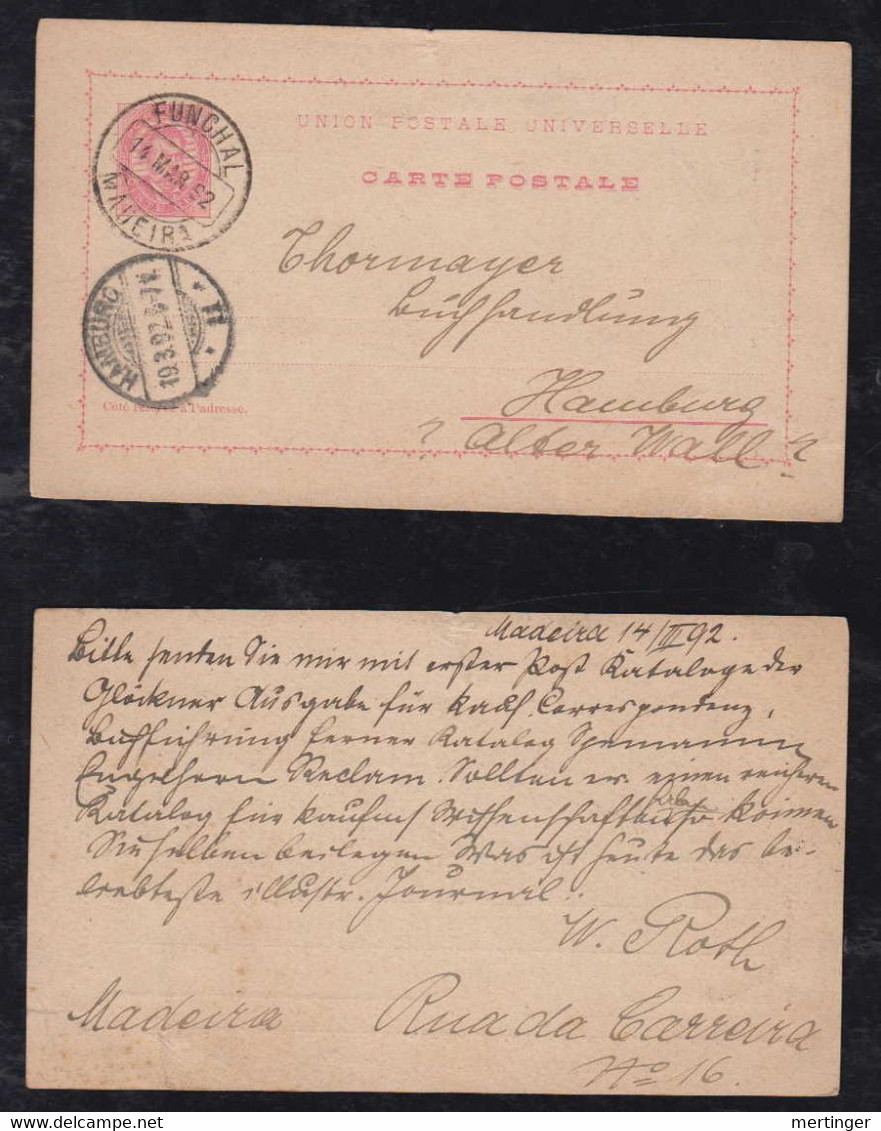 UNION POSTALE UNIVERSELLE
CARTE POSTALE
FUNCHAL
14 MAR 92
MADEIRA
HAMBURG
19.3.92
Thormayer
Buchhandlung
Hamburg
? Alter Wall ?
Côté réservé à l'adresse.
Madeira 14/III 92.
Bitte senden Sie mir mit erster Post Kataloge der
Glöckner Ausgabe für kaufm. Correspondenz,
Buchführung ferner Katalog Spemann
Engelhorn Reclam. Sollten Sie einen
Katalog für kaufm. Wissenschaften haben können
Sie selben beilegen Was ist heute das be-
liebteste illustr. Journal.
W. Roth
Madeira Rua da Carreira
No 16.
mertinger